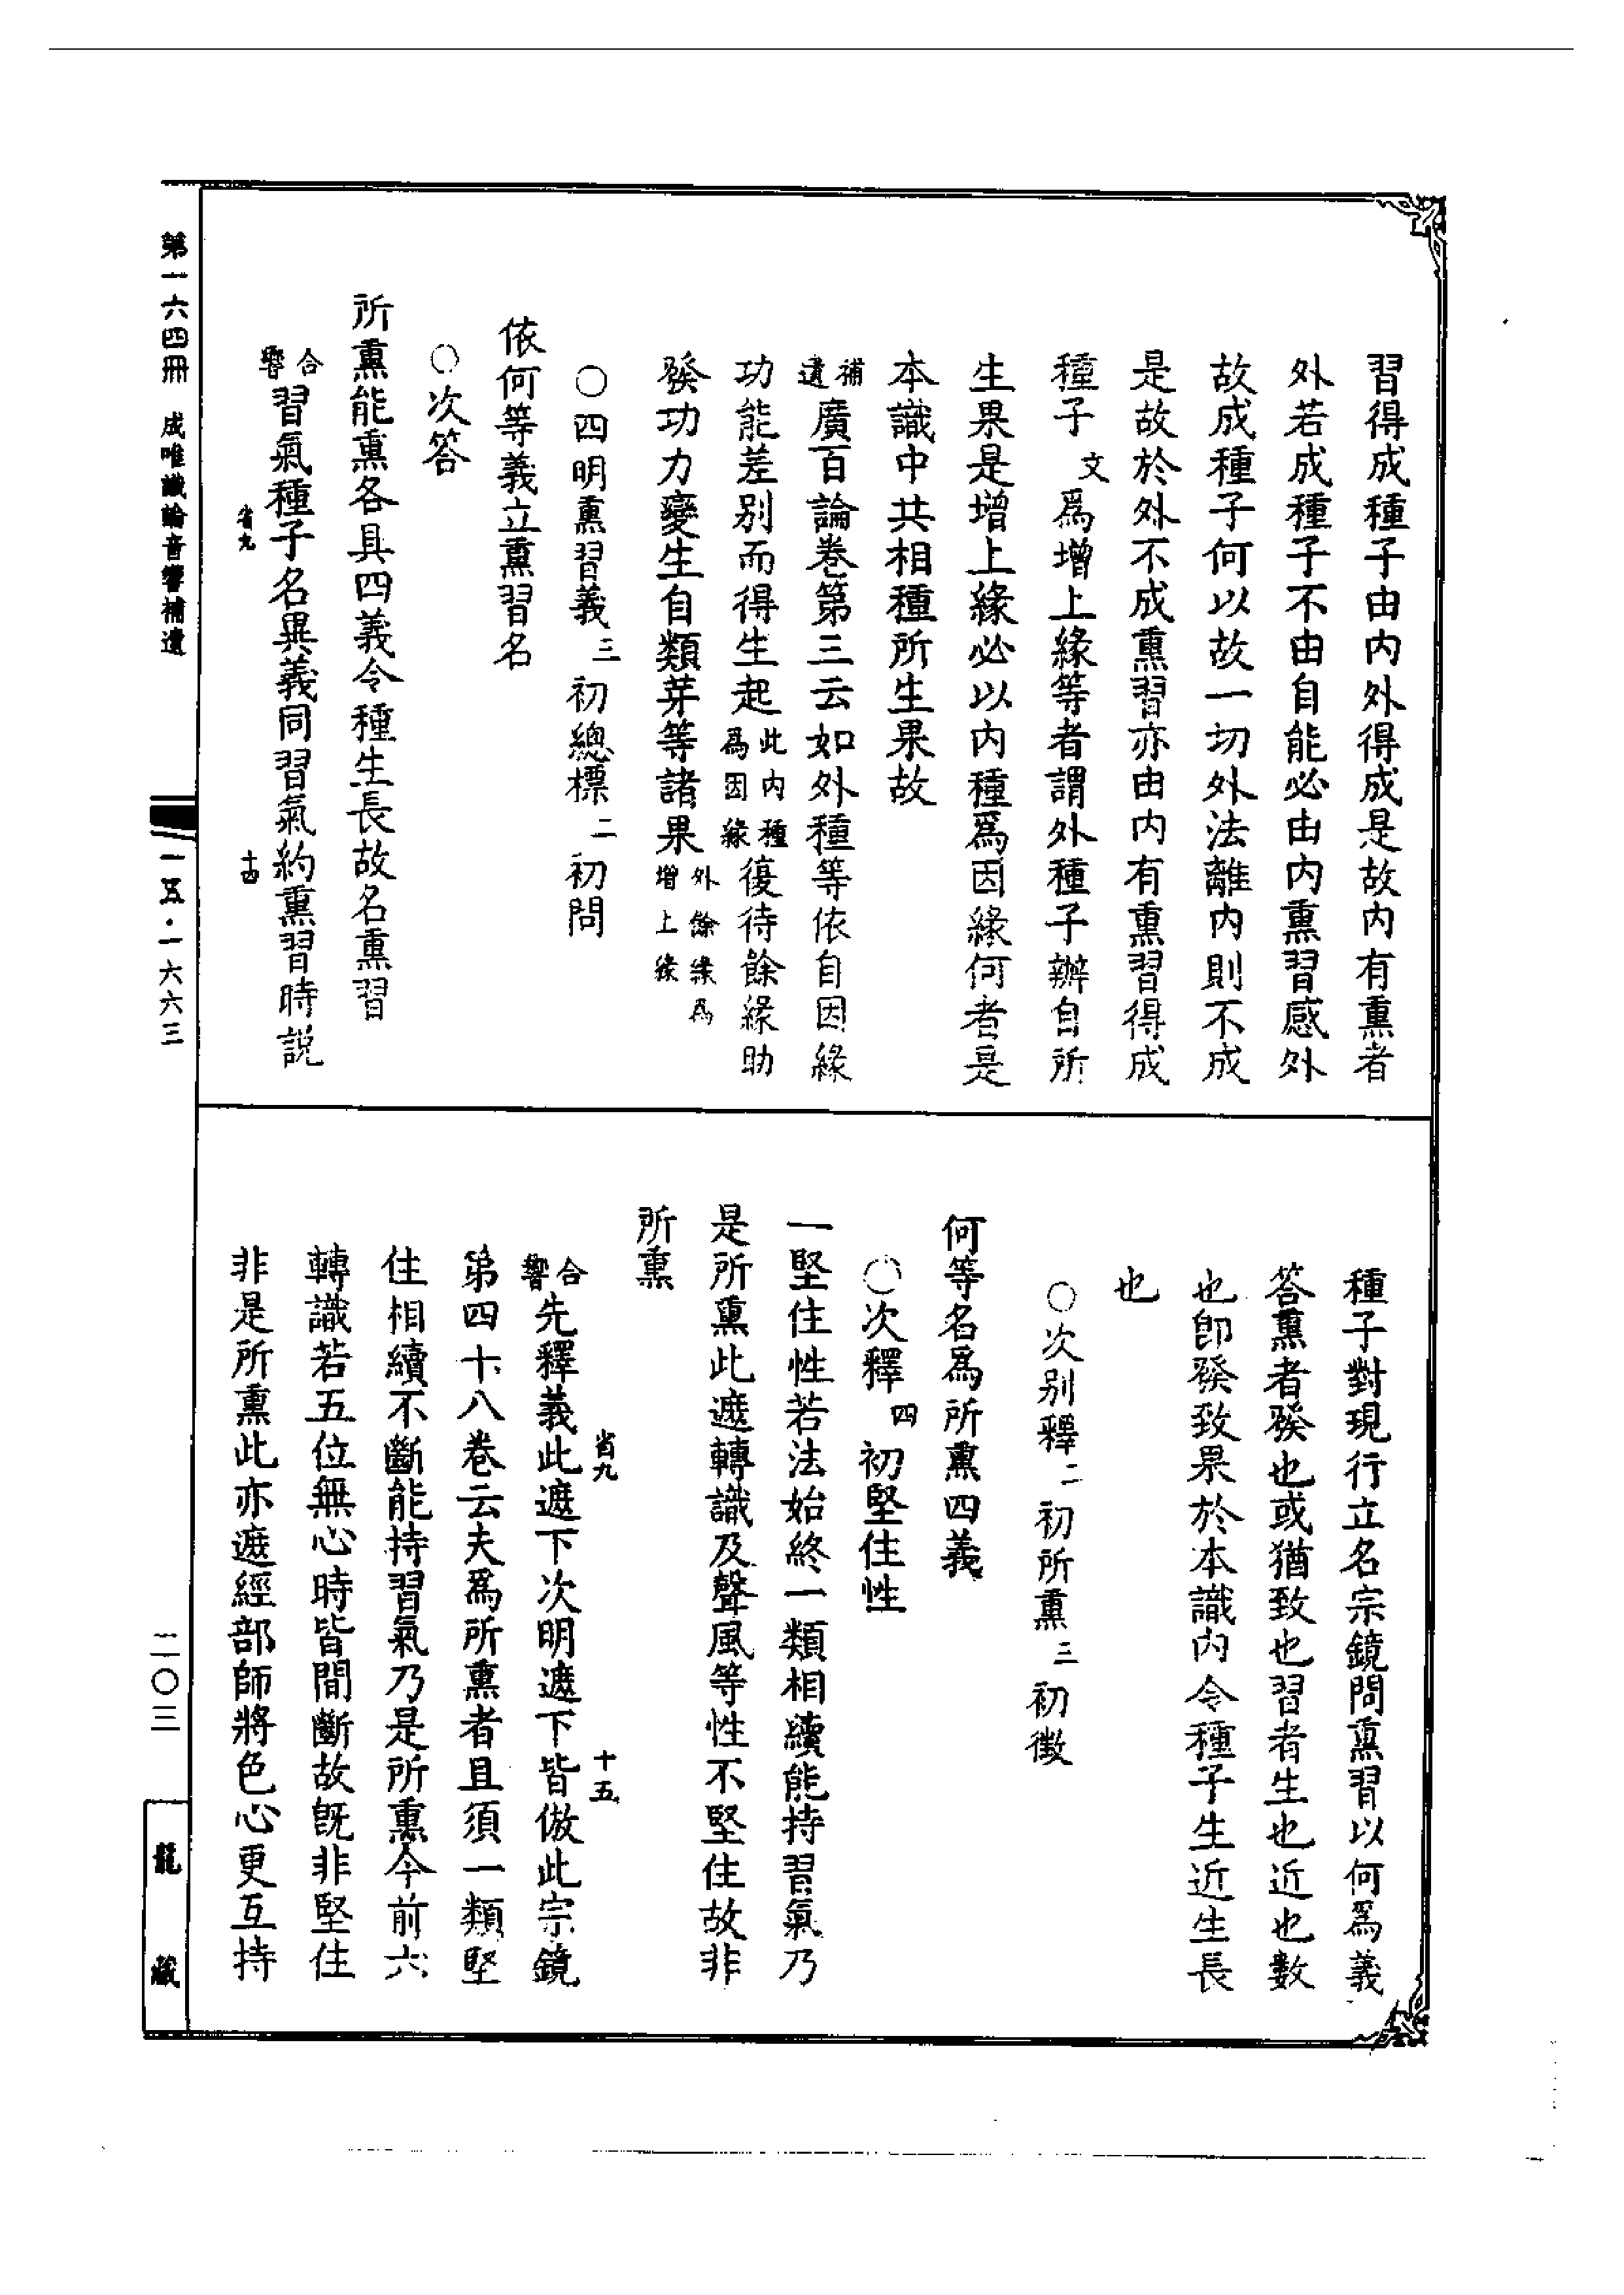 習得成種子由内外得成是故内有熏者
外若成種子不由自能必由内熏習感外
故成種子何以故一切外法離内則不成
是故於外不成熏習亦由内有熏習得成
種子文爲增上緣等者謂外種子辦自所
生果是增上緣必以内種爲因緣何者是
本識中共相種所生果故
補遺廣百論卷第三云如外種等依自因緣
功能差别而得生起此内種爲因緣復待餘緣助
發功力變生自類芽等諸果外餘緣爲增上緣
○四明熏習義三初總標二初問
依何等義立熏習名
○次答
所熏能熏各具四義令種生長故名熏習
合響習氣種子名異義同習氣約熏習時説
省九 十四
種子對現行立名宗鏡問熏習以何爲義
答熏者發也或猶致也習者生也近也數
也卽發致果於本識内令種子生近生長
也
○次别釋二初所熏三初徵
何等名爲所熏四義
○次釋四初堅住性
一堅住性若法始終一類相續能持習氣乃
是所熏此遮轉識及聲風等性不堅住故非
所熏
合響先釋義此遮下次明遮下皆倣此宗鏡
省九 十五
第四十八卷云夫爲所熏者且須一類堅
住相續不斷能持習氣乃是所熏今前六
轉識若五位無心時皆間斷故旣非堅住
非是所熏此亦遮經部師將色心更互持
第一六四冊 成唯識論音響補遺
一五・一六六三
二〇三
龍藏